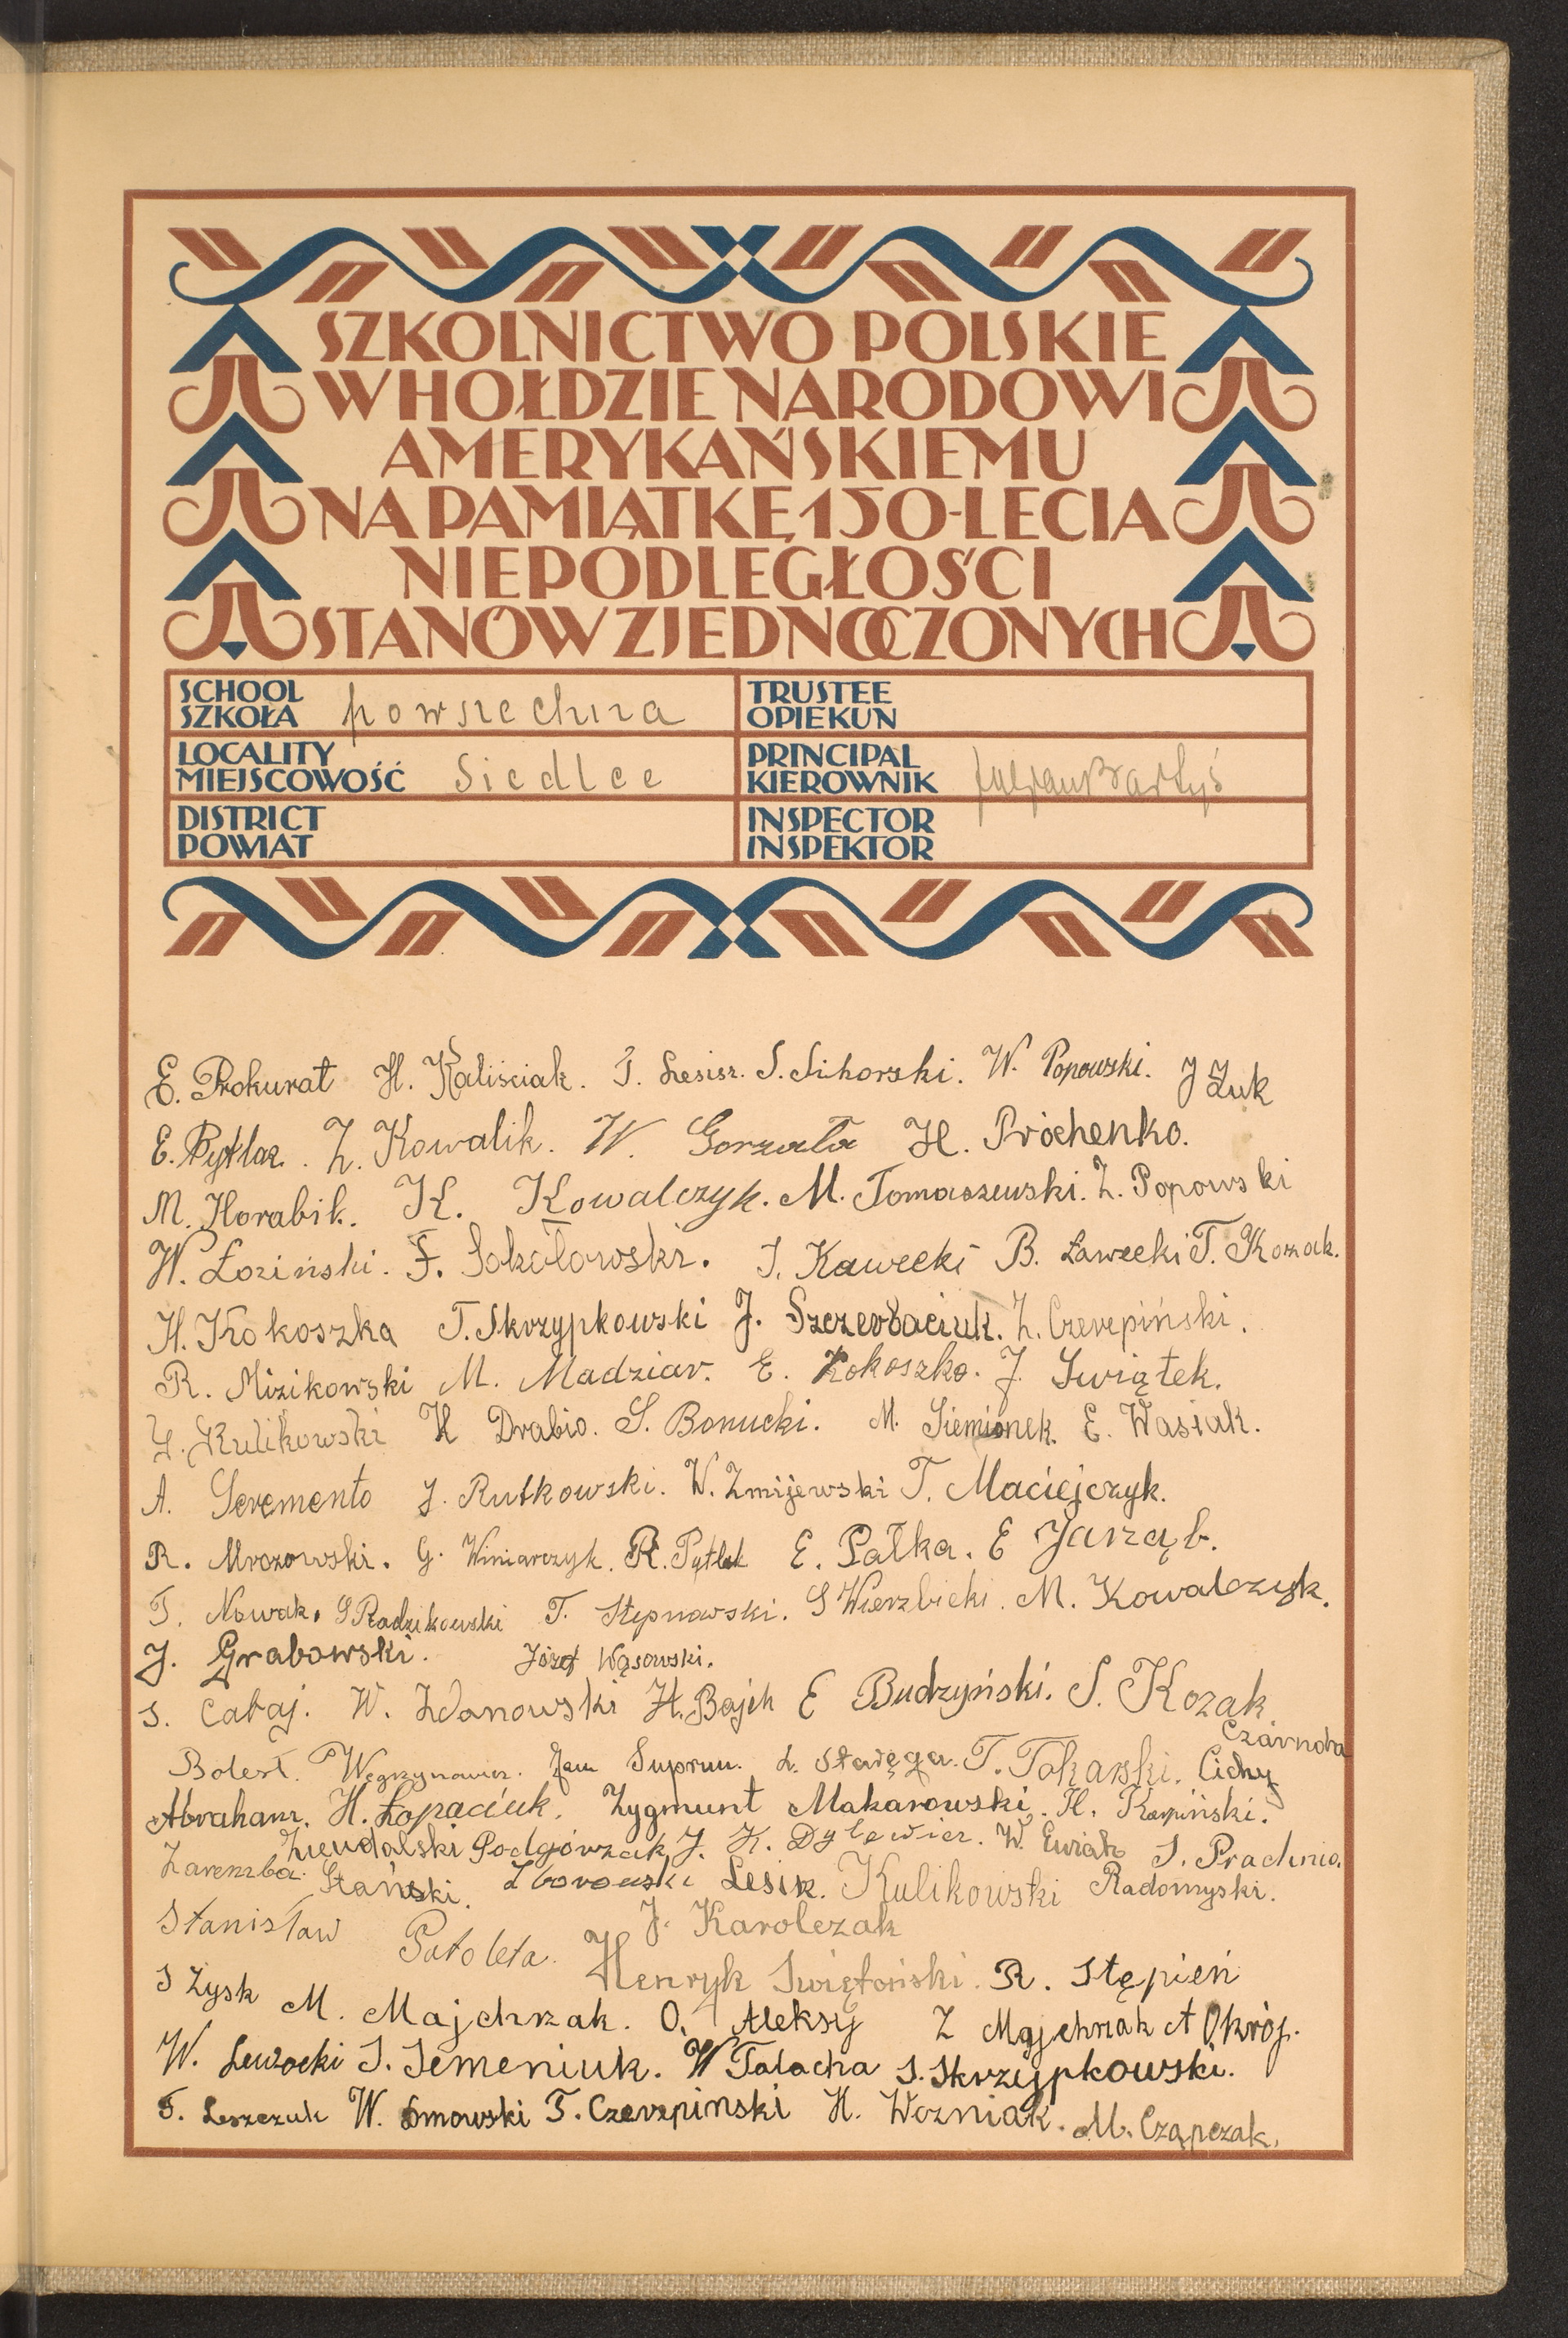 SZKOLNICTWO POLSKIE
W HOŁDZIE NARODOWI
AMERYKAŃSKIEMU
NA PAMIĄTKĘ 150-LECIA
NIEPODLEGŁOŚCI
STANÓW ZJEDNOCZONYCH
SCHOOL
SZKOŁA powszechna
TRUSTEE
OPIEKUN
LOCALITY
MIEJSCOWOŚĆ Siedlce
PRINCIPAL
KIEROWNIK Julian Bartyś
DISTRICT
POWIAT
INSPECTOR
INSPEKTOR
E. Prokurat H. Kaliściak. T. Lesisz. S. Sikorski. W. Popowski. J Żuk
E. Pytlak. Z. Kowalik. W. Gorzała H. Próchenko.
M. Horabik. K. Kowalczyk. M. Tomaszewski. Z. Popowski
W. Łoziński. F. Sokołowski. J. Kawecki B. Ławecki T. Kozak.
H. Kokoszka T. Skrzypkowski J. Szczerbaciuk. Z. Czerepiński.
R. Mizikowski M. Madziar. E. Kokoszko. J. Świątek.
Kulikowski H Drabio. S. Bonucki. M. Siemionek. E. Wasiak.
A. Seremento J. Rutkowski. W. Żmijewski T. Maciejczyk.
R. Mrozowski. G. Winiarczyk. R. Pytlak E. Pałka. E Jarząb.
T. Nowak. S Radzikowski T. Stępnowski. S Wierzbicki. M. Kowalczyk.
J. Grabowski. Józef Wąsowski.
S. Cabaj. W. Zdanowski H. Bajek E Budzyński. S. Kozak
Czarnota
Bolesł. Węgrzynowicz. Jan Suprun. L. Staręga. T. Tokarski. Cichy
Abraham. H. Łopaciuk. Zygmunt Makarowski. H. Karpiński.
Podgórzak J. K. Dylewicz. W. S. Prachnio.
Zaremba. Stański. Zborowski Lesik. Kulikowski Radomyski.
Stanisław Patoleta. J. Karolczak
Henryk Świętoński. R. Stępień
S Zysk M. Majchrzak. O. Aleksy Z Majchrzak A Okrój.
W. Lewocki S. Semeniuk. W Talacha S. Skrzypkowski.
F. Leszczuk W. Smowski T. Czerepinski H. Wozniak. M. Czapczak.